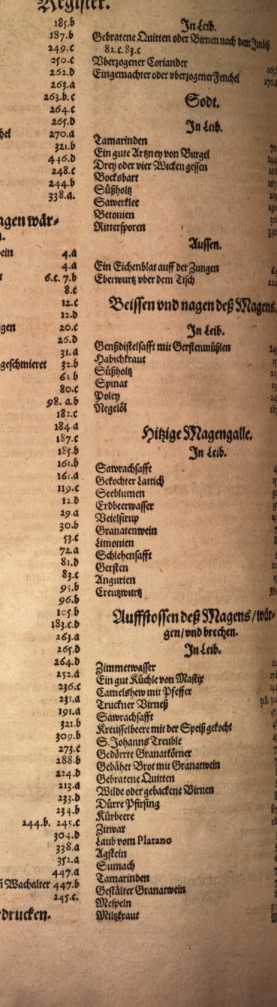 Register.
185.b
187.b
249.c
250.c
262.d
263.a
263.b.c
264.c
265.d
270.a
321.b
446.d
248.c
244.b
338.a.
agen wär-
4.a
4.a
6.c. 7.b
8.c
12.c
12.d
20.c
26.d
31.a
geschmieret 32.b
61.b
80.c
98. a.b
182.c
184.a
187.c
185.b
161.b
161.a
119.c
12.d
29.a
30.b
53.c
72.a
81.d
83.c
95.b
96.b
105.b
183.c.d
263.a
265.d
264.d
252.a
236.c
231.a
191.a
321.b
309.b
273.c
288.b
224.d
213.a
233.d
234.b
244.b. 245.c
304.d
338.a
352.a
447.a
Wachalter 447.b
245.c.
drucken.
In Leib.
Gebratene Quitten oder Birnen nach dem Imbiß
82.c. 83.c
Vberzogener Coriander
Eingemachter oder vberzogener Fenchel
Sodt.
In Leib.
Tamarinden
Ein gute Artzney von Burgel
Drey oder vier Wecken gessen
Bocksbart
Süßholtz
Sawerklee
Betonien
Rittersporen
Aussen.
Ein Eichenblat auff der Zungen
Eberwurtz vber dem Tisch
Beissen vnd nagen deß Magens.
In Leib.
Genßdistelsafft mit Gerstenmüßlen
Habichkraut
Süßholtz
Spinat
Poley
Negelöl
Hitzige Magengalle.
In Leib.
Sawrachsafft
Gekochter Lattich
Seeblumen
Erdbeerwasser
Veielsirup
Granatenwein
Limonien
Schlehensafft
Gersten
Angurien
Creutzwurtz
Auffstossen deß Magens/wür-
gen/vnd brechen.
In Leib.
Zimmetwasser
Ein gut Küchle von Mastix
Camelshew mit Pfeffer
Truckner Birnen
Sawrachsafft
Kreusselbeere mit der Speiß gekocht
S. Johanns Treuble
Gedörrte Granatkörner
Gebähet Brot mit Granatwein
Gebratene Quitten
Wilde oder gebackene Birnen
Dürre Pfirsing
Kürbeere
Zitwar
Laub vom Platano
Agstein
Sumach
Tamarinden
Gestälter Granatwein
Mespeln
Miltzkraut